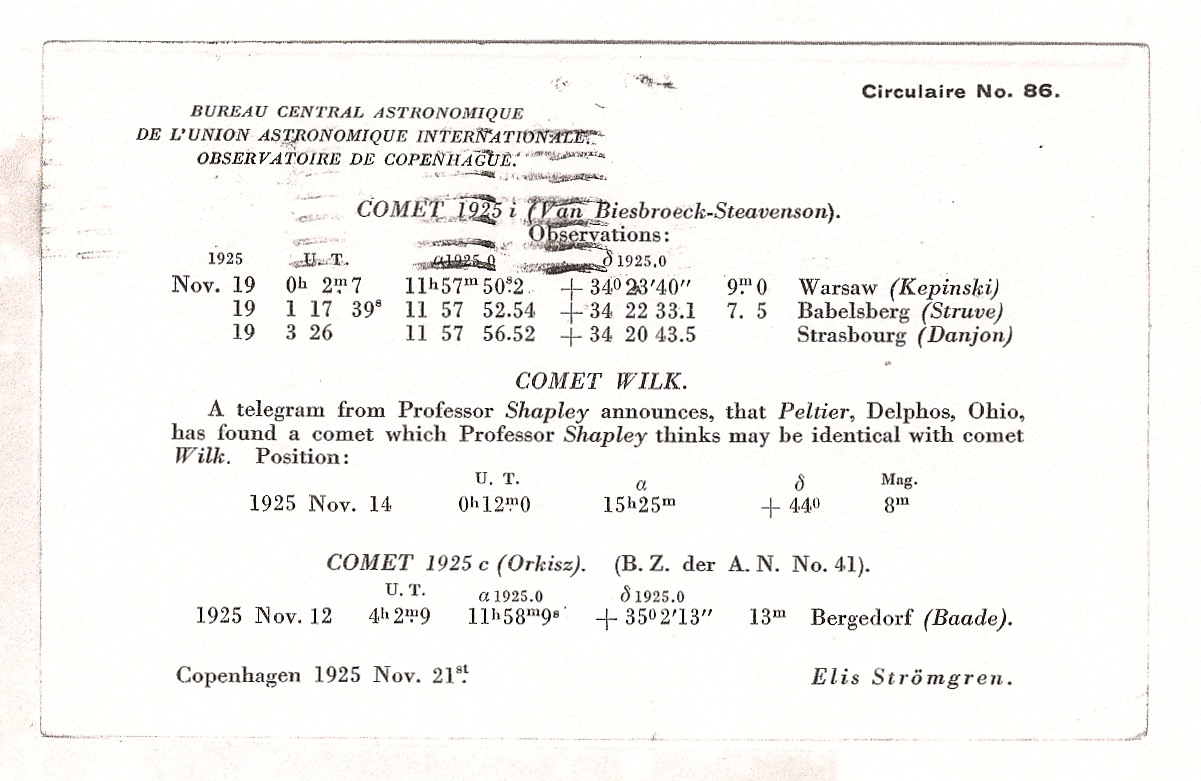 Circulaire No. 86.
BUREAU CENTRAL ASTRONOMIQUE
DE L'UNION ASTRONOMIQUE INTERNATIONALE.
OBSERVATOIRE DE COPENHAGUE.
COMET 1925 i (Van Biesbroeck-Steavenson).
Observations:
1925 U. T. α 1925.0 δ 1925.0
Nov. 19 0ʰ 2ᵐ.7 11ʰ57ᵐ50ˢ.2 + 34⁰ 23′40″ 9ᵐ.0 Warsaw (Kepinski)
19 1 17 39ˢ 11 57 52.54 + 34 22 33.1 7. 5 Babelsberg (Struve)
19 3 26 11 57 56.52 + 34 20 43.5 Strasbourg (Danjon)
COMET WILK.
A telegram from Professor Shapley announces, that Peltier, Delphos, Ohio,
has found a comet which Professor Shapley thinks may be identical with comet
Wilk. Position:
U. T. α δ Mag.
1925 Nov. 14 0ʰ12ᵐ.0 15ʰ25ᵐ + 44⁰ 8ᵐ
COMET 1925 c (Orkisz). (B. Z. der A. N. No. 41).
U. T. α 1925.0 δ 1925.0
1925 Nov. 12 4ʰ2ᵐ.9 11ʰ58ᵐ9ˢ + 35⁰2′13″ 13ᵐ Bergedorf (Baade).
Copenhagen 1925 Nov. 21ˢᵗ.
Elis Strömgren.